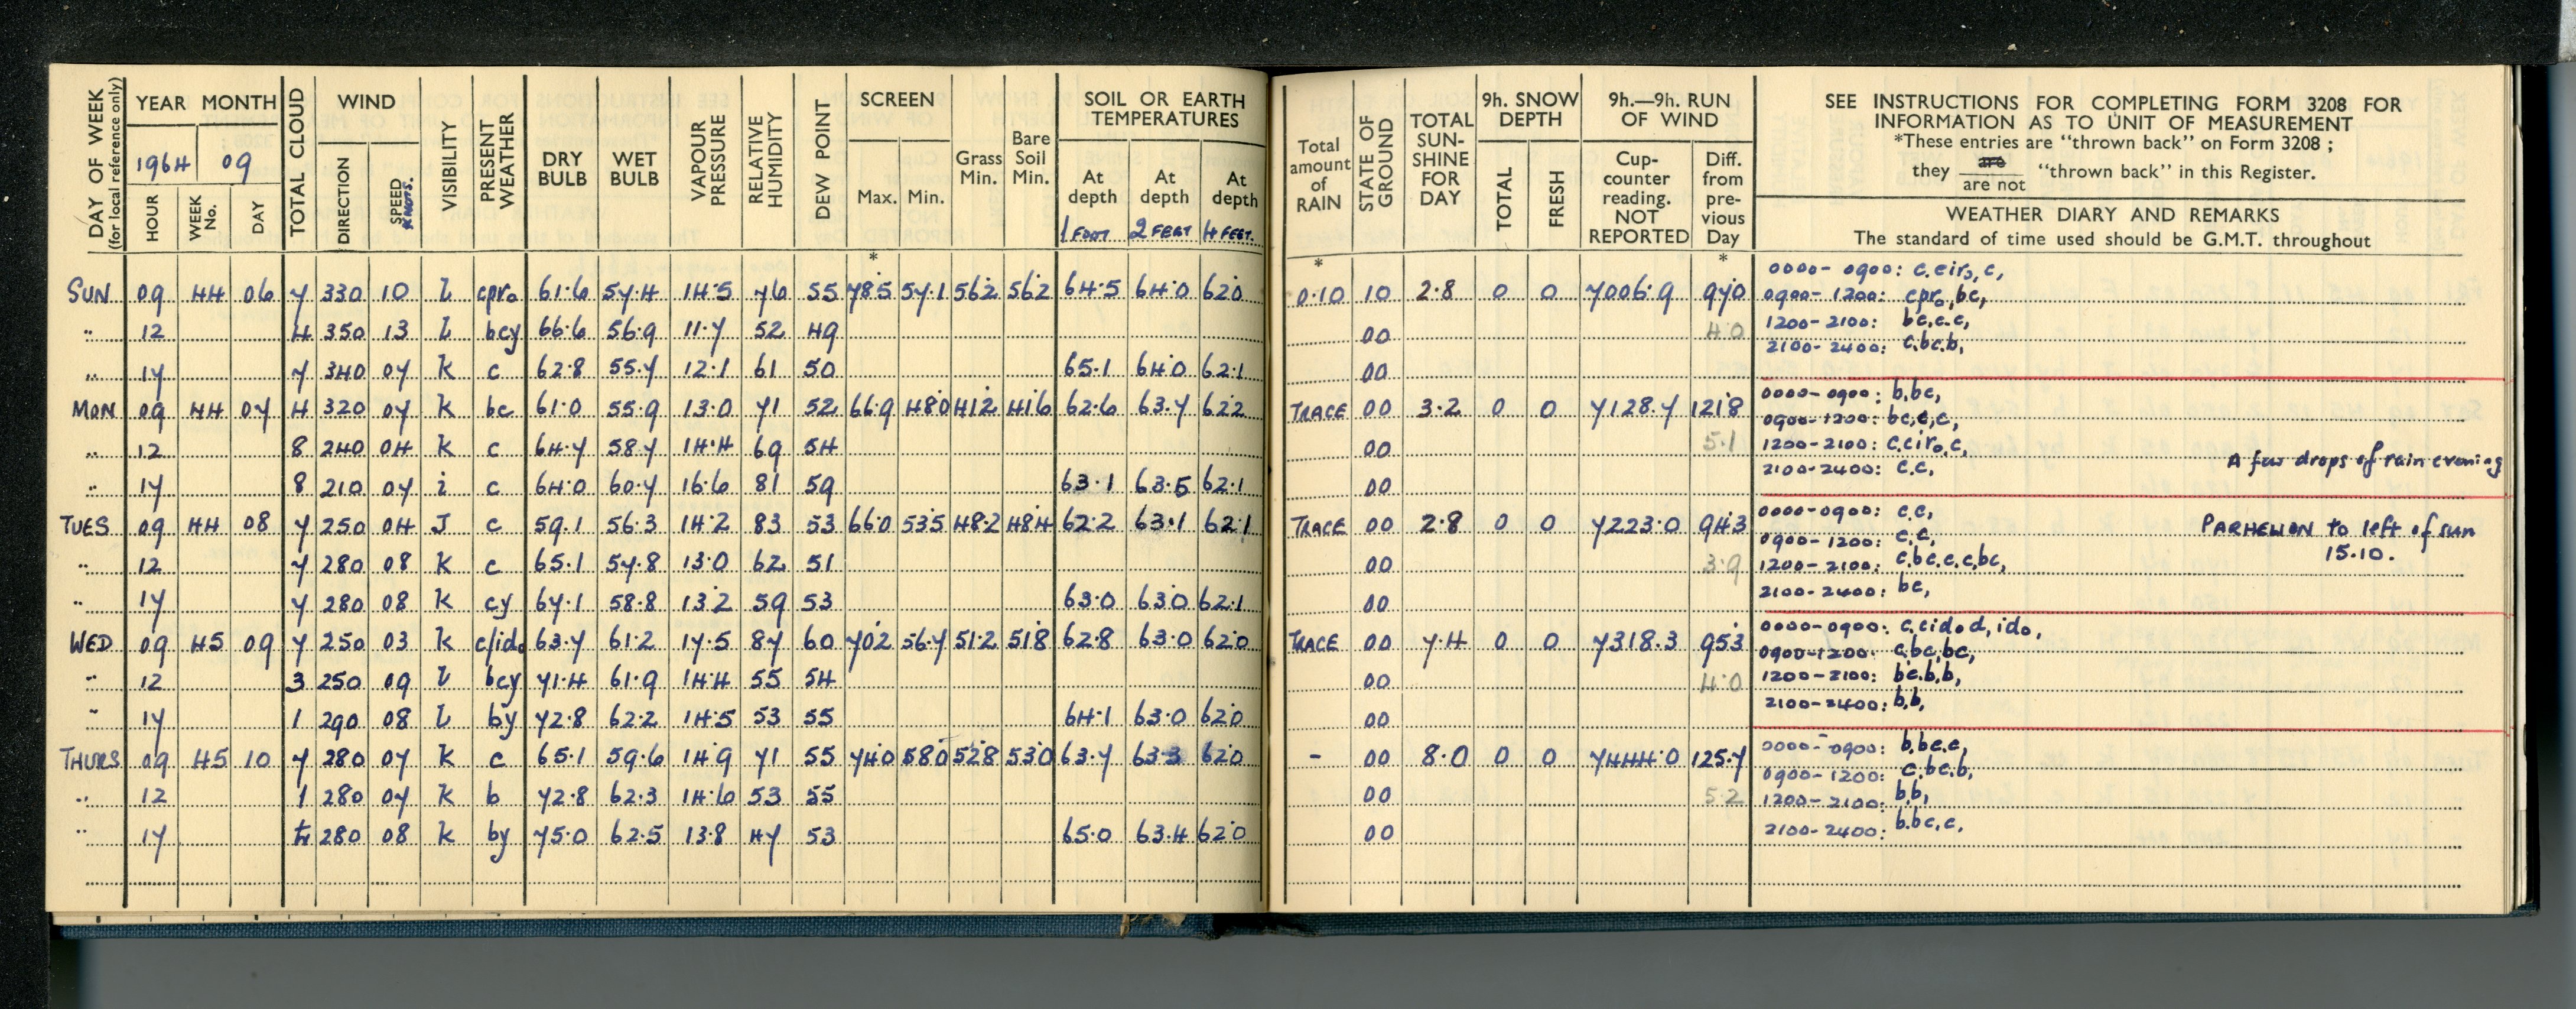 DAY OF WEEK
(for local reference only)
YEAR MONTH
1964 09
HOUR
WEEK No.
DAY
TOTAL CLOUD
WIND
DIRECTION
SPEED
KNOTS.
VISIBILITY
PRESENT WEATHER
DRY BULB
WET BULB
VAPOUR PRESSURE
RELATIVE HUMIDITY
DEW POINT
SCREEN
Max. Min.
*
Grass Min.
Bare Soil Min.
SOIL OR EARTH
TEMPERATURES
At depth
1 FOOT
At depth
2 FEET
At depth
4 FEET.
SUN 09 44 06 7 330 10 l cpr₀ 61.6 57.4 14.5 76 55 78.5 57.1 56.2 56.2 64.5 64.0 62.0
" 12 4 350 13 l bcy 66.6 56.9 11.7 52 49
" 17 7 340 07 k c 62.8 55.7 12.1 61 50 65.1 64.0 62.1
MON 09 44 07 4 320 07 k bc 61.0 55.9 13.0 71 52 66.9 48.0 41.2 41.6 62.6 63.7 62.2
" 12 8 240 04 k c 64.7 58.7 14.4 69 54
" 17 8 210 07 i c 64.0 60.7 16.6 81 59 63.1 63.5 62.1
TUES 09 44 08 7 250 04 J c 59.1 56.3 14.2 83 53 66.0 53.5 48.2 48.4 62.2 63.1 62.1
" 12 7 280 08 k c 65.1 57.8 13.0 62 51
" 17 7 280 08 k cy 67.1 58.8 13.2 59 53 63.0 63.0 62.1
WED 09 45 09 7 250 03 k c/id₀ 63.7 61.2 17.5 87 60 70.2 56.7 51.2 51.8 62.8 63.0 62.0
" 12 3 250 09 l bcy 71.4 61.9 14.4 55 54
" 17 1 290 08 l by 72.8 62.2 14.5 53 55 64.1 63.0 62.0
THURS 09 45 10 7 280 07 k c 65.1 59.6 14.9 71 55 74.0 58.0 52.8 53.0 63.7 63.3 62.0
" 12 1 280 07 k b 72.8 62.3 14.6 53 55
" 17 280 08 k by 75.0 62.5 13.8 47 53 65.0 63.4 62.0
Total amount of RAIN
*
STATE OF GROUND
TOTAL SUN-SHINE FOR DAY
9h. SNOW DEPTH
TOTAL
FRESH
9h.—9h. RUN OF WIND
Cup-counter reading. NOT REPORTED
Diff. from pre-vious Day
*
SEE INSTRUCTIONS FOR COMPLETING FORM 3208 FOR
INFORMATION AS TO UNIT OF MEASUREMENT
*These entries are "thrown back" on Form 3208 ;
they are / are not "thrown back" in this Register.
WEATHER DIARY AND REMARKS
The standard of time used should be G.M.T. throughout
0.10 10 2.8 0 0 7006.9 97.0
00 4.0
00
0000- 0900: c.cir₀,c,
0900- 1200: cpr₀,bc,
1200-2100: bc,c.c,
2100-2400: c.bc.b,
TRACE 00 3.2 0 0 7128.7 121.8
00 5.1
00
0000-0900: b,bc,
0900-1200: bc,c,c,
1200-2100: c.cir₀.c,
2100-2400: c.c,
A few drops of rain evening
TRACE 00 2.8 0 0 7223.0 94.3
00 3.9
00
0000-0900: c.c,
0900-1200: c.c,
1200-2100: c.bc.c.c,bc,
2100-2400: bc,
PARHELION to left of sun
15.10.
TRACE 00 7.4 0 0 7318.3 95.3
00 4.0
00
0000-0900: c.cid₀d, id₀,
0900-1200: c,bc,bc,
1200-2100: bc.b.b,
2100-2400: b.b,
- 00 8.0 0 0 7444.0 125.7
00 5.2
00
0000-0900: b.bc.c,
0900-1200: c.bc.b,
1200-2100: b.b,
2100-2400: b.bc.c,